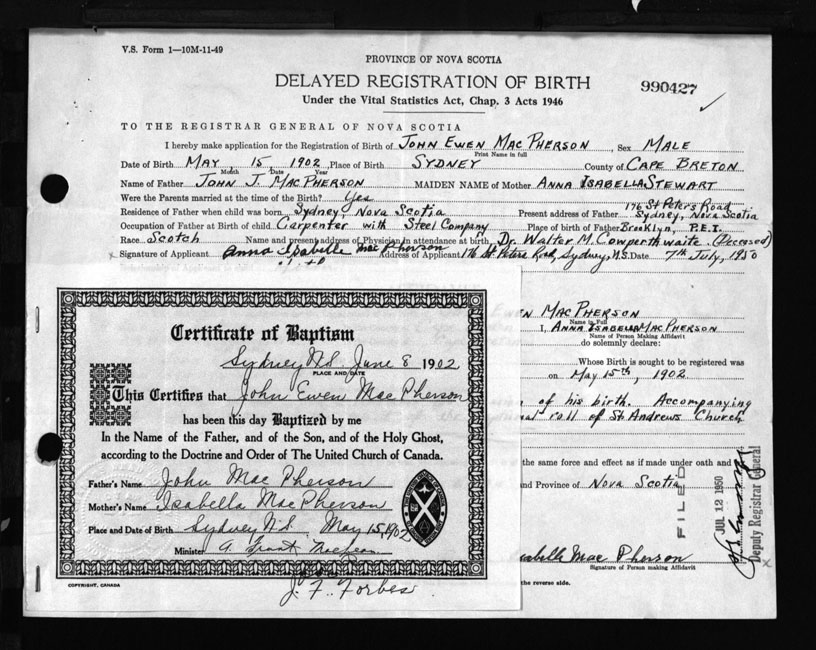 V.S. Form 1—10M-11-49
PROVINCE OF NOVA SCOTIA
DELAYED REGISTRATION OF BIRTH
990427
Under the Vital Statistics Act, Chap. 3 Acts 1946
TO THE REGISTRAR GENERAL OF NOVA SCOTIA
I hereby make application for the Registration of Birth of JOHN EWEN MAC PHERSON, Sex MALE
Print Name in full
Date of Birth MAY, 15, 1902, Place of Birth SYDNEY County of CAPE BRETON
Month Date Year
Name of Father JOHN J. MACPHERSON MAIDEN NAME of Mother ANNA ISABELLA STEWART
Were the Parents married at the time of Birth? Yes
176 St Peters Road
Residence of Father when child was born Sydney, Nova Scotia Present address of Father Sydney, Nova Scotia
Occupation of Father at Birth of child Carpenter with Steel Company Place of birth of Father Brooklyn, P.E.I.
Race Scotch Name and present address of Physician in attendance at birth Dr. Walter M. Cowperthwaite. (Deceased)
Signature of Applicant Anna Isabelle MacPherson Address of Applicant 176 St. Peters Road, Sydney, N.S. Date 7th July, 1950
EN MACPHERSON
Name in Full
I, ANNA ISABELLA MACPHERSON
Name of Person Making Affidavit
do solemnly declare:
Whose Birth is sought to be registered was
on May 15th, 1902.
of his birth. Accompanying
roll of St. Andrews Church
the same force and effect as if made under oath and
and Province of Nova Scotia
FILED
JUL 12 1950
Deputy Registrar General
abelle Mac Pherson
Signature of Person making Affidavit
the reverse side.
Certificate of Baptism
Sydney N.S. June 8 1902
PLACE AND DATE
This Certifies that John Ewen Mac Pherson
has been this day Baptized by me
In the Name of the Father, and of the Son, and of the Holy Ghost,
according to the Doctrine and Order of The United Church of Canada.
Father's Name John Mac Pherson
Mother's Name Isabella MacPherson
Place and Date of Birth Sydney N.S. May 15, 1902
Minister A.
J. F. Forbes
COPYRIGHT, CANADA